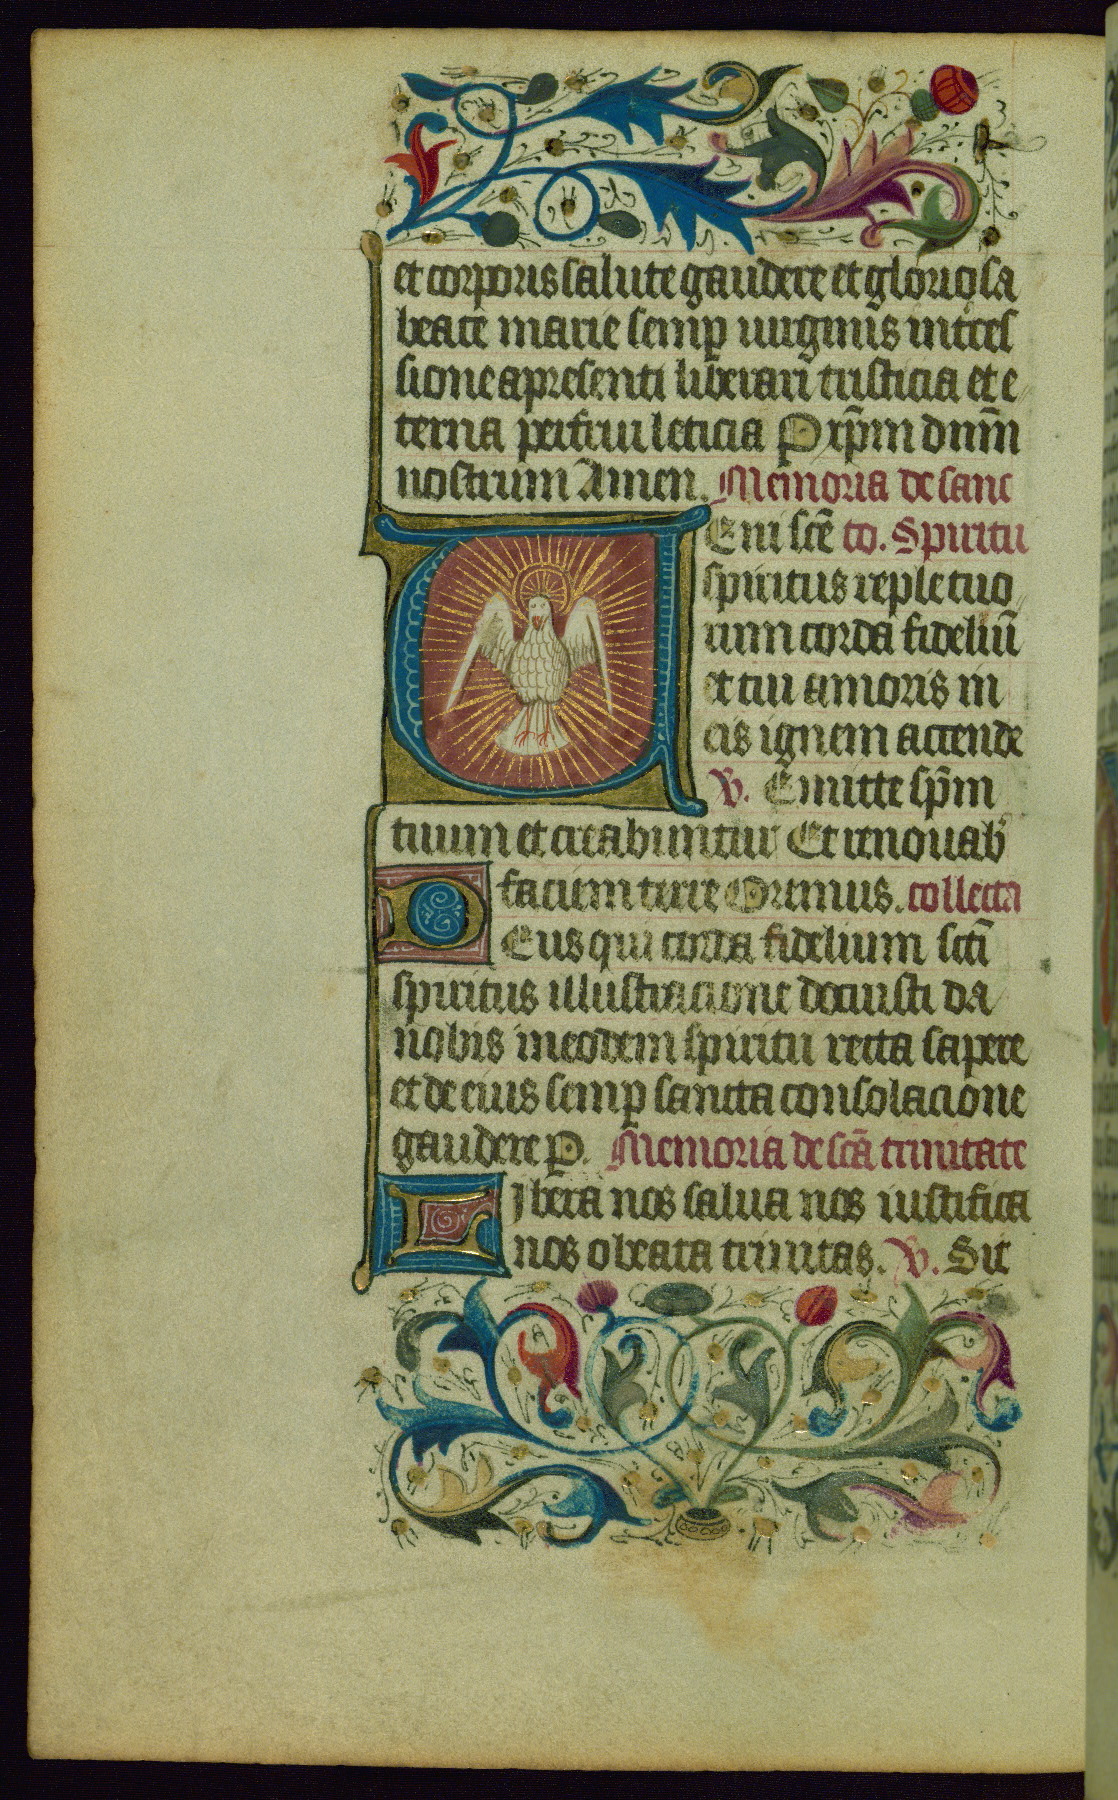 et corporis salute gaudere et gloriosa
beate marie semp virginis intces
sione a presenti liberari tristicia et e
terna perfrui leticia P xp̄m dnm̄
nostrum Amen. Memoria de sanc
Eni sct̄e to. Spiritu
spiritus reple tuo
rum corda fideliū
et tui amoris in
eis ignem accende
V. Emitte sp̄m
tuum et creabuntur Et renouab'
faciem terre Oremus. collecta
Deus qui corda fidelium sct̄i
spiritus illustracione docuisti da
nobis in eodem spiritu recta sapere
et de eius semp sancta consolacione
gaudere P. Memoria de sct̄a trinitate
Libera nos salua nos iustifica
nos o beata trinitas. V. Sit